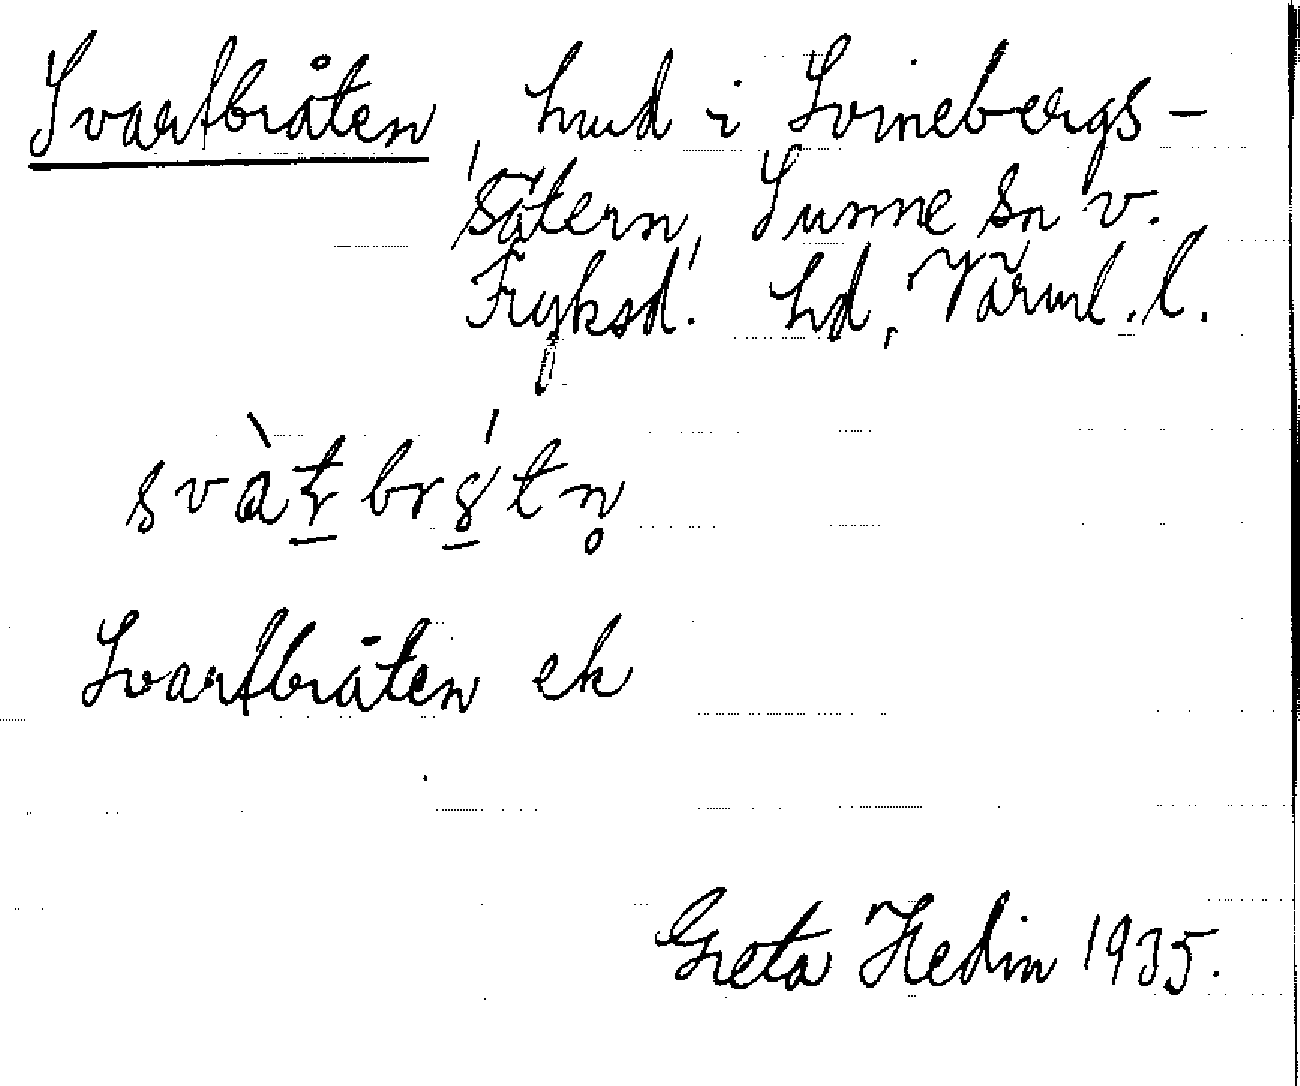 Svartbråten, hmd i Svinebergs-
sätern, Sunne sn v.
Fryksd. hd, Värml. l.
Svartbråten ek
Greta Hedin 1935.